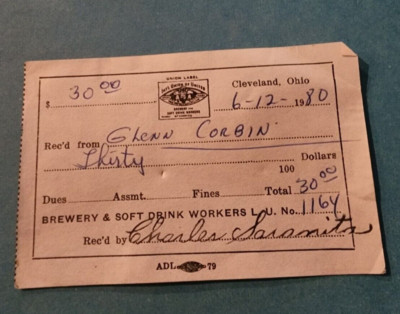 UNION LABEL
$ 30 00 Cleveland, Ohio
6-12-1980
Rec'd from Glenn Corbin
Thirty 100 Dollars
Dues Assmt. Fines Total 30 00
BREWERY & SOFT DRINK WORKERS L. U. No. 1164
Rec'd by Charles
ADL 79